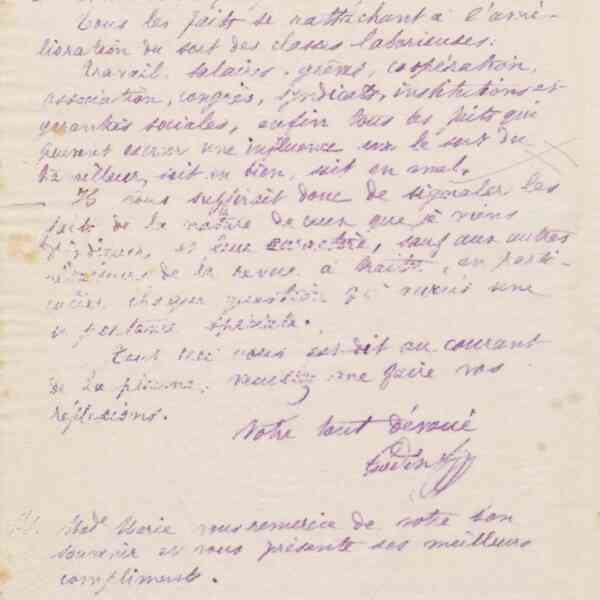 Tous les faits se rattachant à l'amé-
lioration du sort des classes laborieuses:
travail, salaires, grèves, coopération,
association, congrès, syndicats, institutions et
garanties sociales, enfin tous les faits qui
peuvent exercer une influence sur le sort du
travailleur, soit en bien, soit en mal.
Il vous suffirait donc de signaler les
faits de la nature de ceux que je viens
d'indiquer, et leur caractère, sauf aux autres
de la revue à traiter, en parti-
culier, chaque question qui aurait une
importance spéciale.
Tout ceci vous est dit au courant
de la plume, veuillez me faire vos
réflexions.
Votre tout dévoué
Godin
Mad. Marie vous remercie de votre bon
souvenir et vous présente ses meilleurs
compliments.